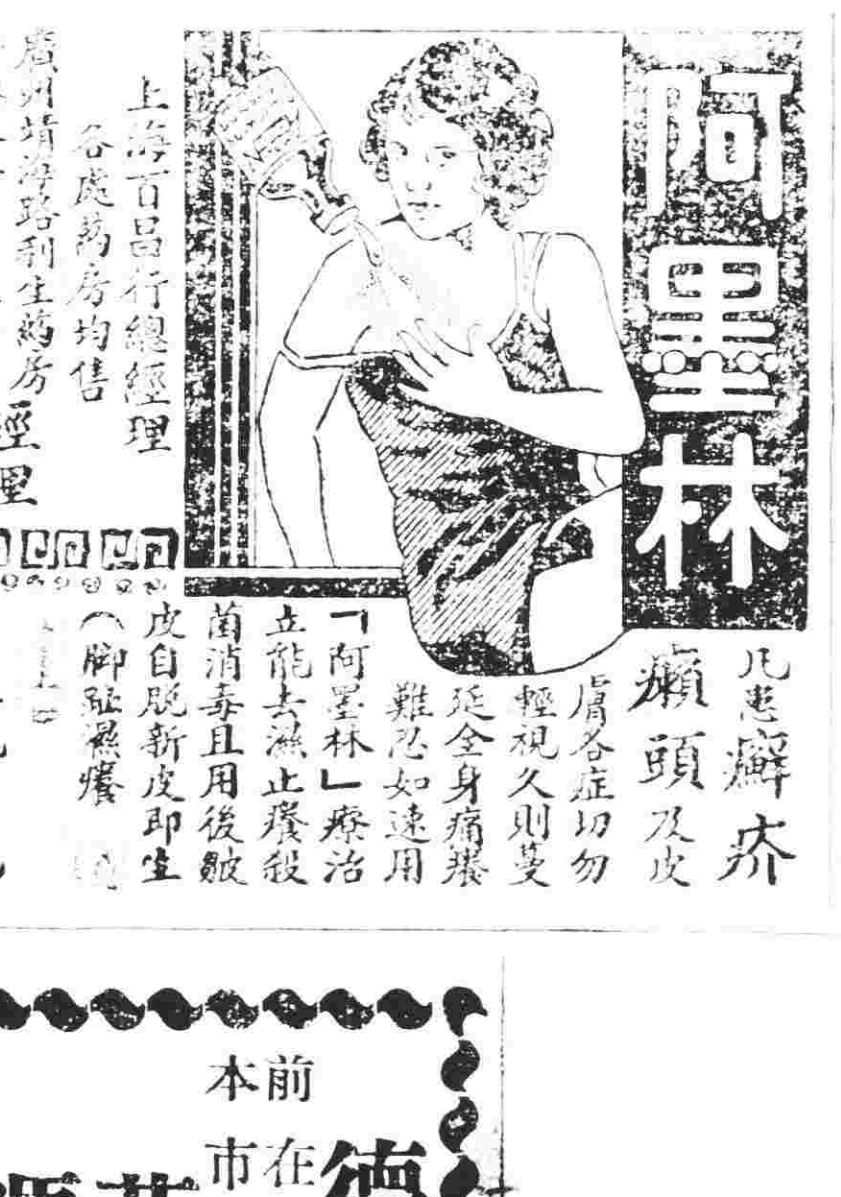 阿墨林
凡患癬疥
癩頭及皮
膚各症切勿
輕視久則蔓
延全身痛癢
難忍如速用
「阿墨林」療治
立能去濕止癢殺
菌消毒且用後皴
皮自脫新皮即生
(脚趾濕癢
上海百昌行總經理
各處葯房均售
廣州靖海路利生葯房
經理
前在
本市
德